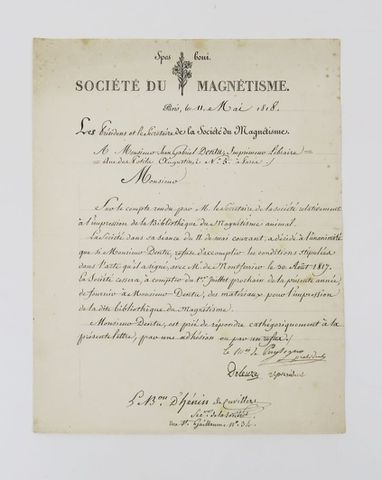 Spes boni.
SOCIÉTÉ DU MAGNÉTISME.
Paris, le 11 Mai 1818.
Les Présidens et le Secrétaire de la Société du Magnétisme.
A Monsieur Jean Gabriel Dentu, Imprimeur Libraire
Rue des Petits Augustins, N.° 5. à Paris
Monsieur
Sur le compte rendu par M. le Secrétaire de la société relativement
à l'impression de la Bibliothèque du Magnétisme animal.
La Société dans sa séance du 11 de mois courant, a décidé à l'unanimité
que si Monsieur Dentu, refuse d'accomplir les conditions stipulées
dans l'acte qu'il a signé, avec M. de Montferrier le 20 Août 1817.
la Société cessera, à compter du 1er Juillet prochain de la présente année,
de fournir à Monsieur Dentu, des matériaux pour l'impression
de la dite bibliothèque du Magnétisme.
Monsieur Dentu, est prié de répondre cathégoriquement à la
présente lettre, par une adhésion ou par un refus.
le M.is de Puysegur
président
Deleuze
L. B.on D'hénin de Cuvillers
Sec.re de la société
Rue St. Guillaume N.° 34.